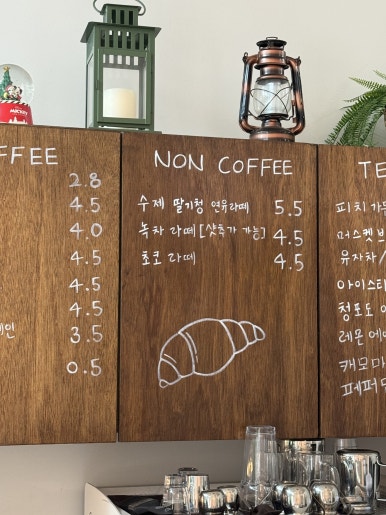 FFEE
2.8
4.5
4.0
4.5
4.5
4.5
3.5
0.5
NON COFFEE
수제 딸기청 연유라떼 5.5
녹차 라떼 [샷추가 가능] 4.5
초코 라떼 4.5
TE
피치 가
퍼스켓
유자차 /
아이스티
청포도
레몬 에이
캐모마
페퍼민